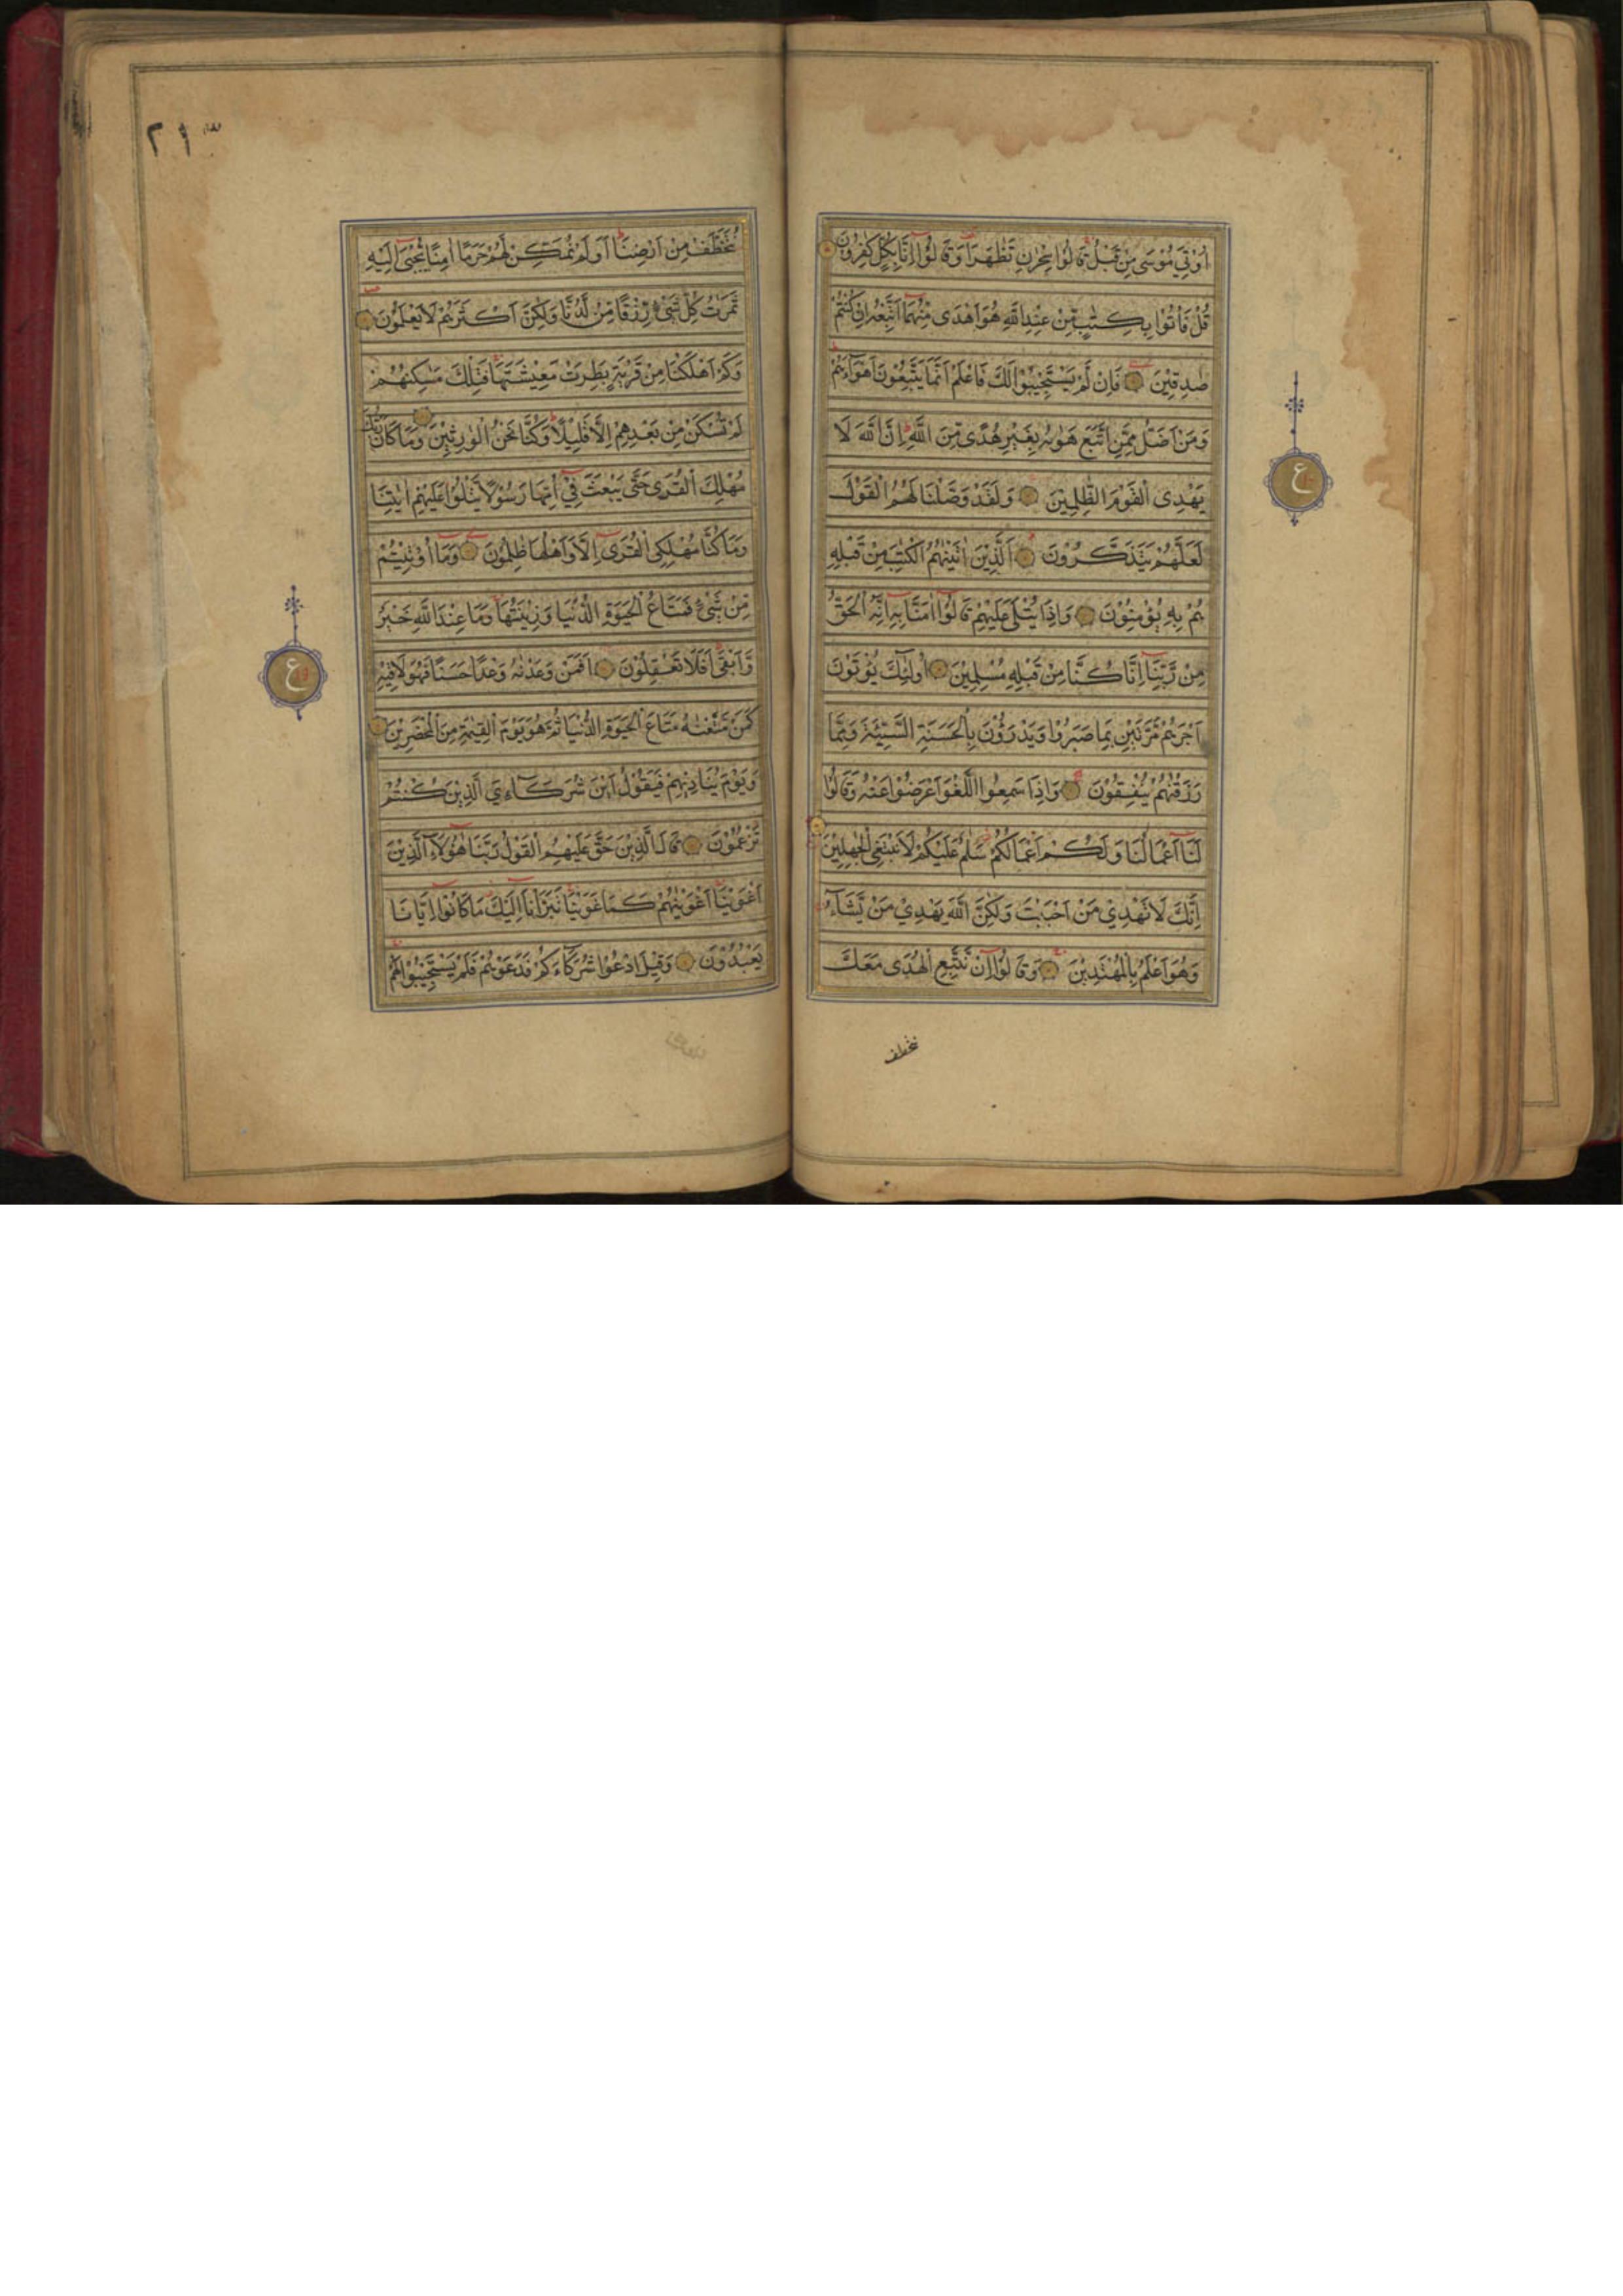 اُوْتِيَ مُوْسٰى مِنْ قَبْلُ قَالُوْا سِحْرٰنِ تَظٰهَرَا وَقَالُوْا اِنَّا بِكُلٍّ كٰفِرُوْنَ
قُلْ فَاْتُوْا بِكِتٰبٍ مِّنْ عِنْدِ اللّٰهِ هُوَ اَهْدٰى مِنْهُمَا اَتَّبِعْهُ اِنْ كُنْتُمْ
صٰدِقِيْنَ فَاِنْ لَّمْ يَسْتَجِيْبُوْا لَكَ فَاعْلَمْ اَنَّمَا يَتَّبِعُوْنَ اَهْوَآءَهُمْ
وَمَنْ اَضَلُّ مِمَّنِ اتَّبَعَ هَوٰىهُ بِغَيْرِ هُدًى مِّنَ اللّٰهِ اِنَّ اللّٰهَ لَا
يَهْدِى الْقَوْمَ الظّٰلِمِيْنَ وَلَقَدْ وَصَّلْنَا لَهُمُ الْقَوْلَ
لَعَلَّهُمْ يَتَذَكَّرُوْنَ اَلَّذِيْنَ اٰتَيْنٰهُمُ الْكِتٰبَ مِنْ قَبْلِهٖ
هُمْ بِهٖ يُؤْمِنُوْنَ وَاِذَا يُتْلٰى عَلَيْهِمْ قَالُوْا اٰمَنَّا بِهٖ اِنَّهُ الْحَقُّ
مِنْ رَّبِّنَا اِنَّا كُنَّا مِنْ قَبْلِهٖ مُسْلِمِيْنَ اُولٰٓئِكَ يُؤْتَوْنَ
اَجْرَهُمْ مَّرَّتَيْنِ بِمَا صَبَرُوْا وَيَدْرَؤُنَ بِالْحَسَنَةِ السَّيِّئَةَ وَمِمَّا
رَزَقْنٰهُمْ يُنْفِقُوْنَ وَاِذَا سَمِعُوا اللَّغْوَ اَعْرَضُوْا عَنْهُ وَقَالُوْا
لَنَا اَعْمَالُنَا وَلَكُمْ اَعْمَالُكُمْ سَلٰمٌ عَلَيْكُمْ لَا نَبْتَغِى الْجٰهِلِيْنَ
اِنَّكَ لَا تَهْدِيْ مَنْ اَحْبَبْتَ وَلٰكِنَّ اللّٰهَ يَهْدِيْ مَنْ يَّشَآءُ
وَهُوَ اَعْلَمُ بِالْمُهْتَدِيْنَ وَقَالُوْا اِنْ نَّتَّبِعِ الْهُدٰى مَعَكَ
نتخطف
ع
٢١٣
نُتَخَطَّفْ مِنْ اَرْضِنَا اَوَلَمْ نُمَكِّنْ لَّهُمْ حَرَمًا اٰمِنًا يُّجْبٰٓى اِلَيْهِ
ثَمَرٰتُ كُلِّ شَيْءٍ رِّزْقًا مِّنْ لَّدُنَّا وَلٰكِنَّ اَكْثَرَهُمْ لَا يَعْلَمُوْنَ
وَكَمْ اَهْلَكْنَا مِنْ قَرْيَةٍ بَطِرَتْ مَعِيْشَتَهَا فَتِلْكَ مَسٰكِنُهُمْ
لَمْ تُسْكَنْ مِنْ بَعْدِهِمْ اِلَّا قَلِيْلًا وَكُنَّا نَحْنُ الْوٰرِثِيْنَ وَمَا كَانَ رَبُّكَ
مُهْلِكَ الْقُرٰى حَتّٰى يَبْعَثَ فِيْ اُمِّهَا رَسُوْلًا يَّتْلُوْا عَلَيْهِمْ اٰيٰتِنَا
وَمَا كُنَّا مُهْلِكِى الْقُرٰى اِلَّا وَاَهْلُهَا ظٰلِمُوْنَ وَمَا اُوْتِيْتُمْ
مِّنْ شَيْءٍ فَمَتَاعُ الْحَيٰوةِ الدُّنْيَا وَزِيْنَتُهَا وَمَا عِنْدَ اللّٰهِ خَيْرٌ
وَّاَبْقٰى اَفَلَا تَعْقِلُوْنَ اَفَمَنْ وَعَدْنٰهُ وَعْدًا حَسَنًا فَهُوَ لَاقِيْهِ
كَمَنْ مَّتَّعْنٰهُ مَتَاعَ الْحَيٰوةِ الدُّنْيَا ثُمَّ هُوَ يَوْمَ الْقِيٰمَةِ مِنَ الْمُحْضَرِيْنَ
وَيَوْمَ يُنَادِيْهِمْ فَيَقُوْلُ اَيْنَ شُرَكَآءِيَ الَّذِيْنَ كُنْتُمْ
تَزْعُمُوْنَ قَالَ الَّذِيْنَ حَقَّ عَلَيْهِمُ الْقَوْلُ رَبَّنَا هٰٓؤُلَآءِ الَّذِيْنَ
اَغْوَيْنَا اَغْوَيْنٰهُمْ كَمَا غَوَيْنَا تَبَرَّاْنَا اِلَيْكَ مَا كَانُوْا اِيَّانَا
يَعْبُدُوْنَ وَقِيْلَ ادْعُوْا شُرَكَآءَكُمْ فَدَعَوْهُمْ فَلَمْ يَسْتَجِيْبُوْا لَهُمْ
ع